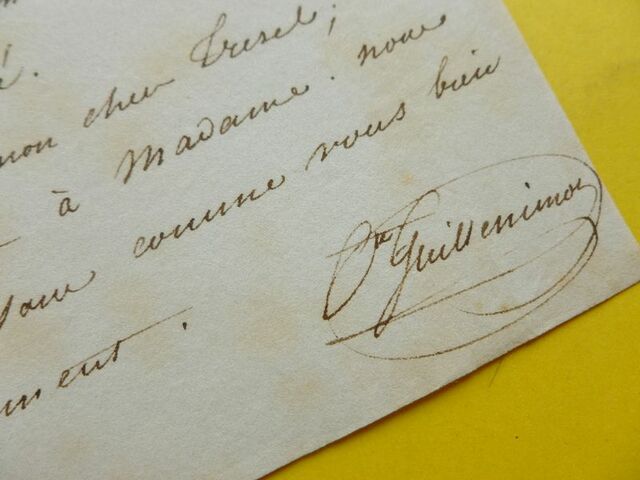 é.
mon cher Trésel;
à Madame. nous
comme vous bien
ment.
Guilleminot